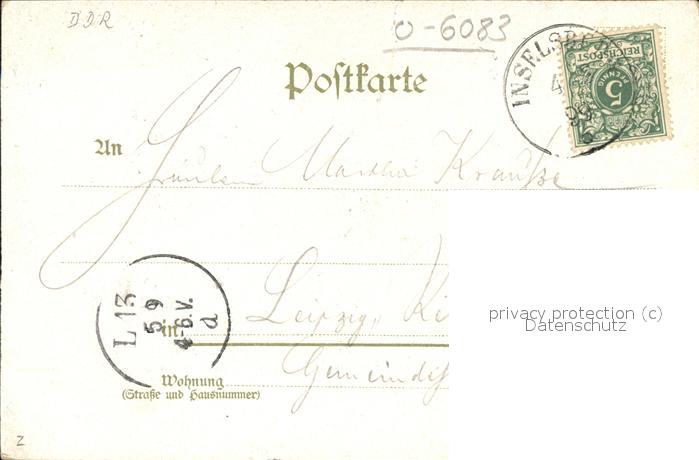 DDR
O-6083
Postkarte
INSELSB
4
99
REICHSPOST
5
PFENNIG
An Fräulein Martha Krauße
L 13
5 9
4-6.V.
d
in Leipzig, Ki
privacy protection (c)
Datenschutz
Wohnung
(Straße und Hausnummer)
z